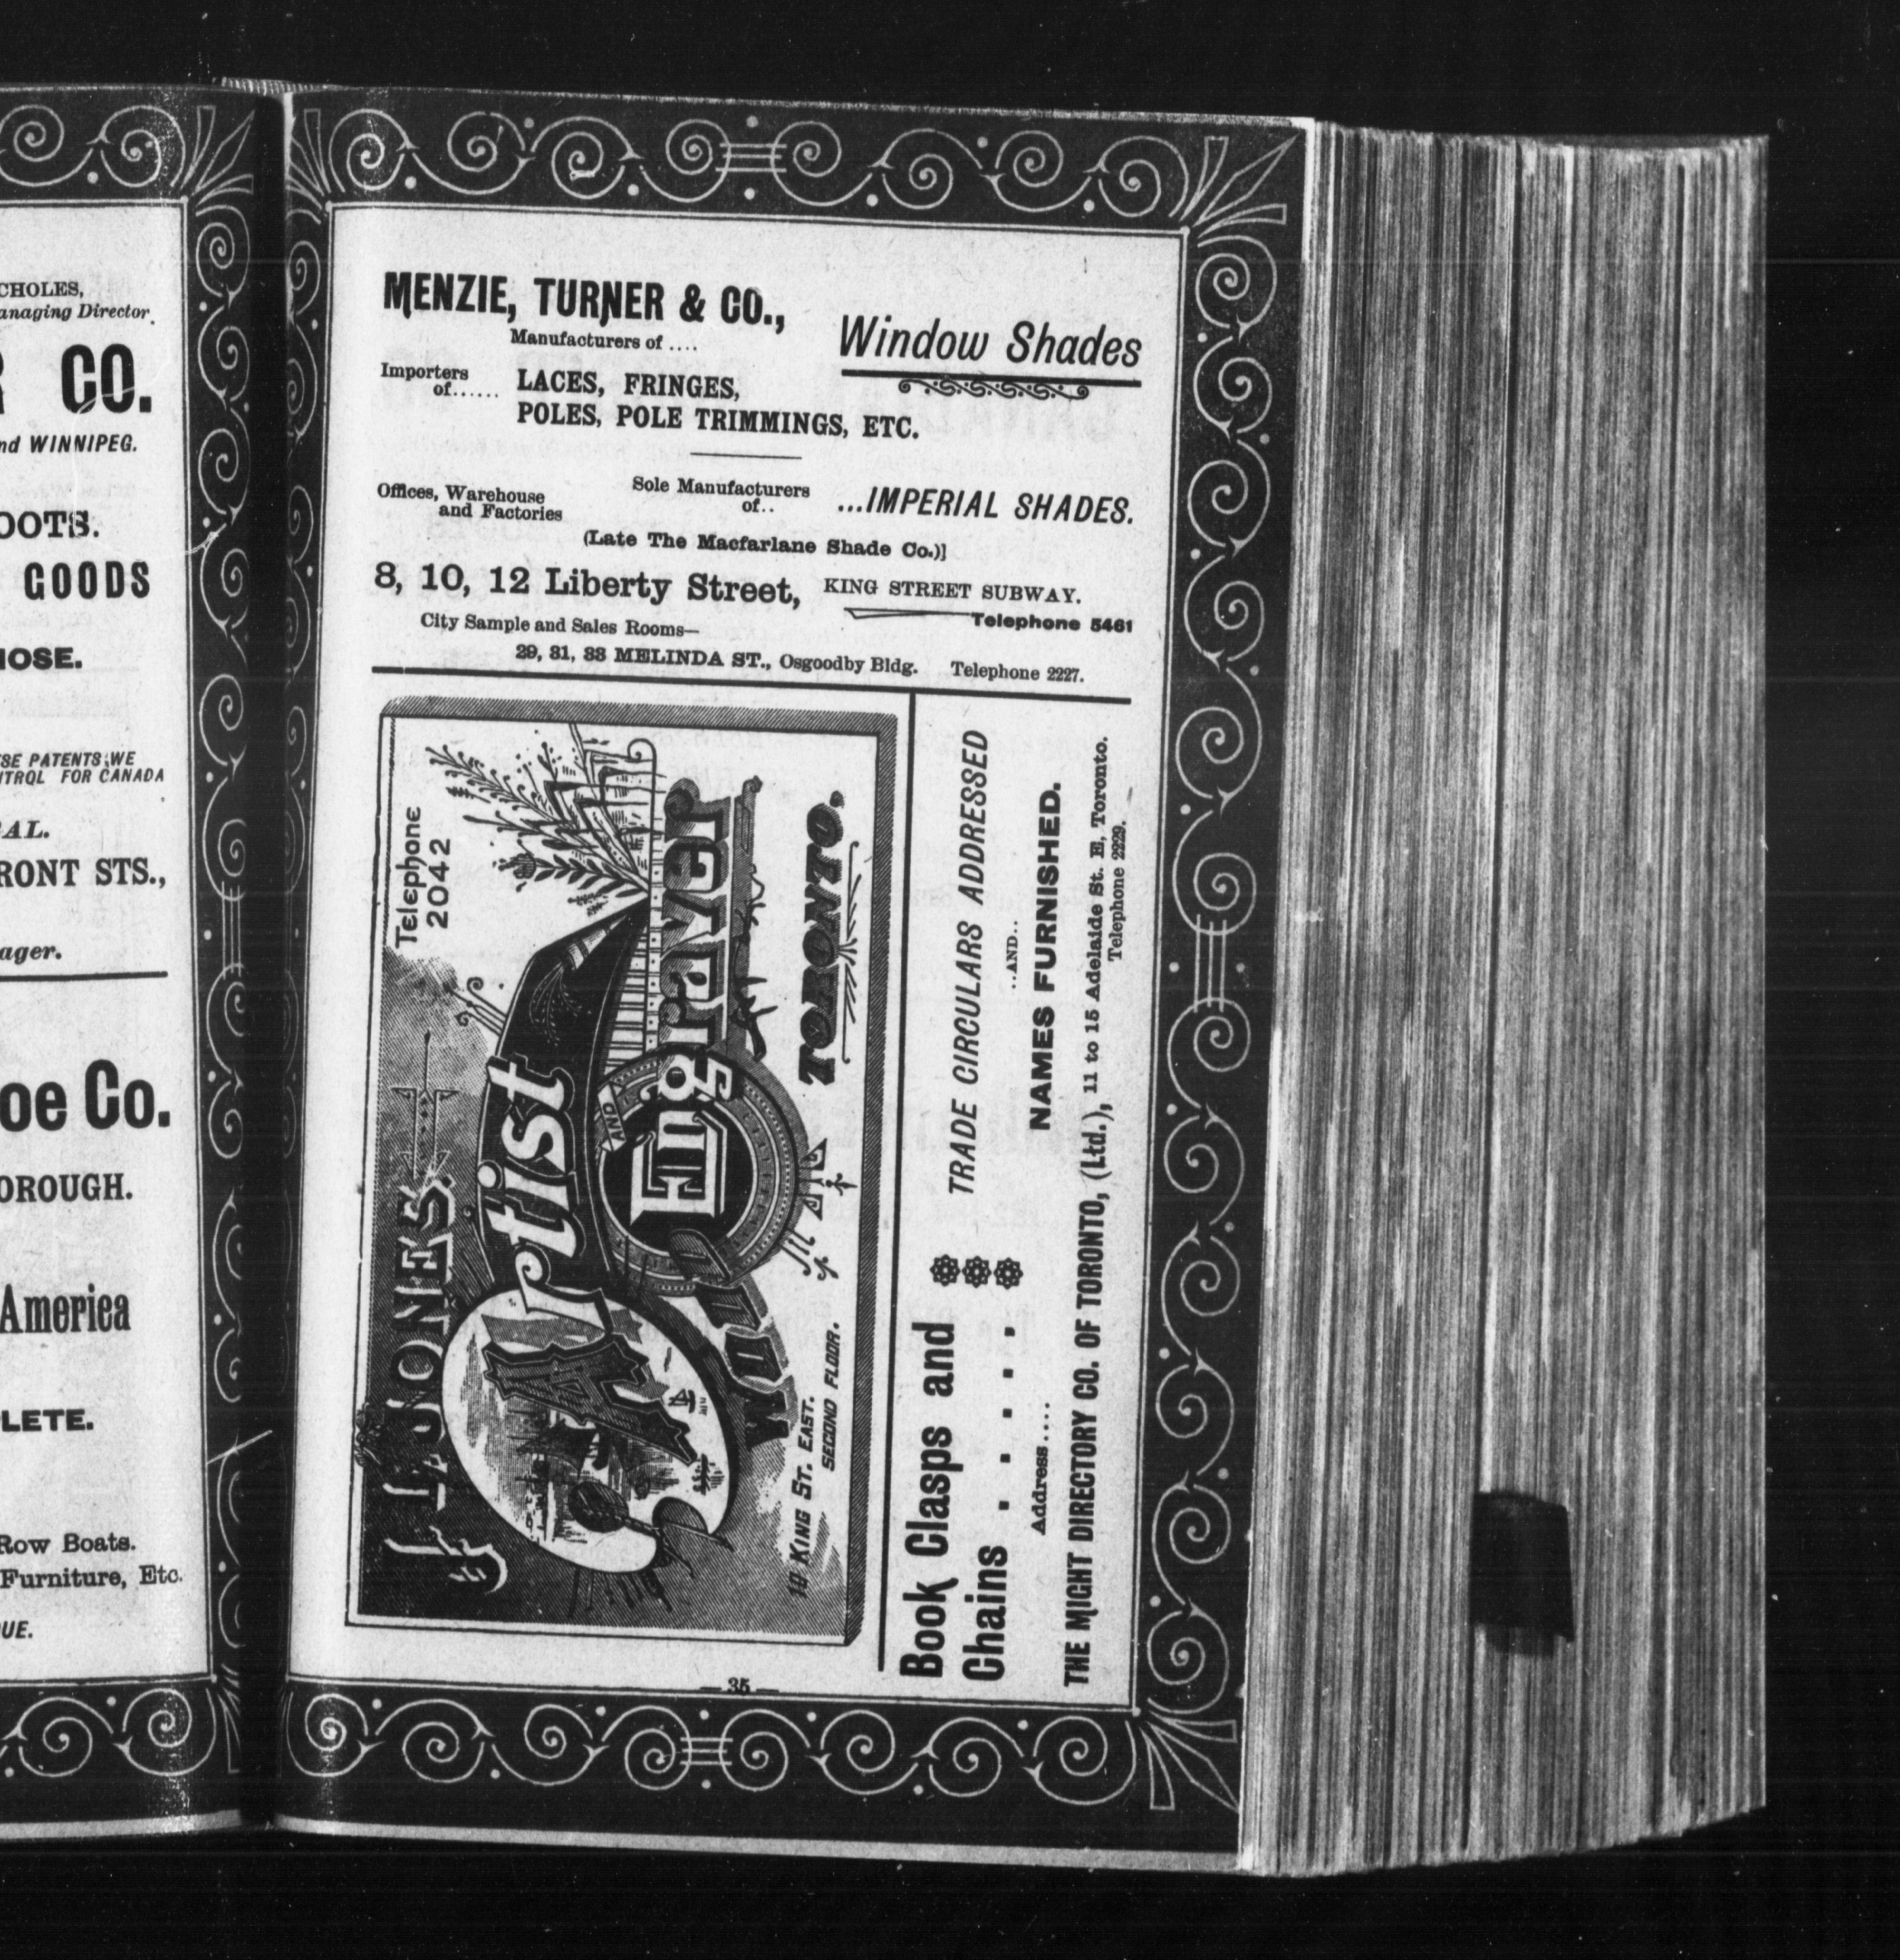 CHOLES,
anaging Director.
CO.
nd WINNIPEG.
OOTS.
GOODS
HOSE.
SE PATENTS WE
FOR CANADA
AL.
RONT STS.,
ager.
oe Co.
OROUGH.
America
LETE.
Row Boats.
Furniture, Etc.
UE.
MENZIE, TURNER & CO.,
Manufacturers of ....
Window Shades
Importers
of......
LACES, FRINGES,
POLES, POLE TRIMMINGS, ETC.
Offices, Warehouse
and Factories
Sole Manufacturers
of..
...IMPERIAL SHADES.
(Late The Macfarlane Shade Co.)]
8, 10, 12 Liberty Street, KING STREET SUBWAY.
Telephone 5461
City Sample and Sales Rooms—
29, 31, 33 MELINDA ST., Osgoodby Bldg. Telephone 2227.
J. L. JONES.
Telephone
2042
Artist
AND
WOOD
Engraver
10 KING ST. EAST.
SECOND FLOOR.
TORONTO.
Book Clasps and
Chains . . . . .
TRADE CIRCULARS ADDRESSED
..AND..
NAMES FURNISHED.
Address....
THE MIGHT DIRECTORY CO. OF TORONTO, (Ltd.), 11 to 15 Adelaide St. E, Toronto.
Telephone 2229.
— 35 —